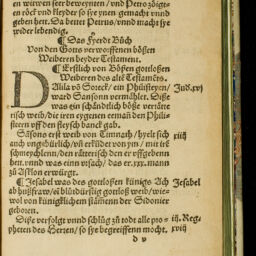 en witwen seer beweynten / vnd Petro zöigten
röck vnd kleyder so sy ynen gemacht vnnd
geben hett. Da bettet Petrus / vnnd macht sye
wider lebendig.
¶ Das Fyerdt Büch
Von den Gotts verworffenen bößen
Weiberen beyder Testament.
¶ Erstlich von Bößen gottloßen
Weiberen des alte Testamēts.
Dalila vō Soreck / ein Philisteyen /
ward Sansonn vermählet. Diße
was ein schandtlich böße verräte
risch weib / die iren eygenen eeman den Phili-
steren vff den fleysch banck gab.
Jud. xvj
Sißons erst weib von Timnath / hyelt sich
auch vngebürlich / vn̄ erküldet von ym / mit irē
schmeychlenn / den rätterisch den er vffgebenn
het. vnnd was einn vrsach / das er. xxx. mann
zů Asklon erwürgt.
xiiij
¶ Jesabel was des gottloßen künigs Ach
ab hußfraw / ei blůdtdürstig gottloß weib / wie-
wol von künigklichem stammen der Sidonier
geboren.
Jesabel
Siße verfolgt vnnd schlůg zů todt alle pro-
pheten des Herren / so sye begreiffenn mocht.
iij. Reg.
xviij
d v